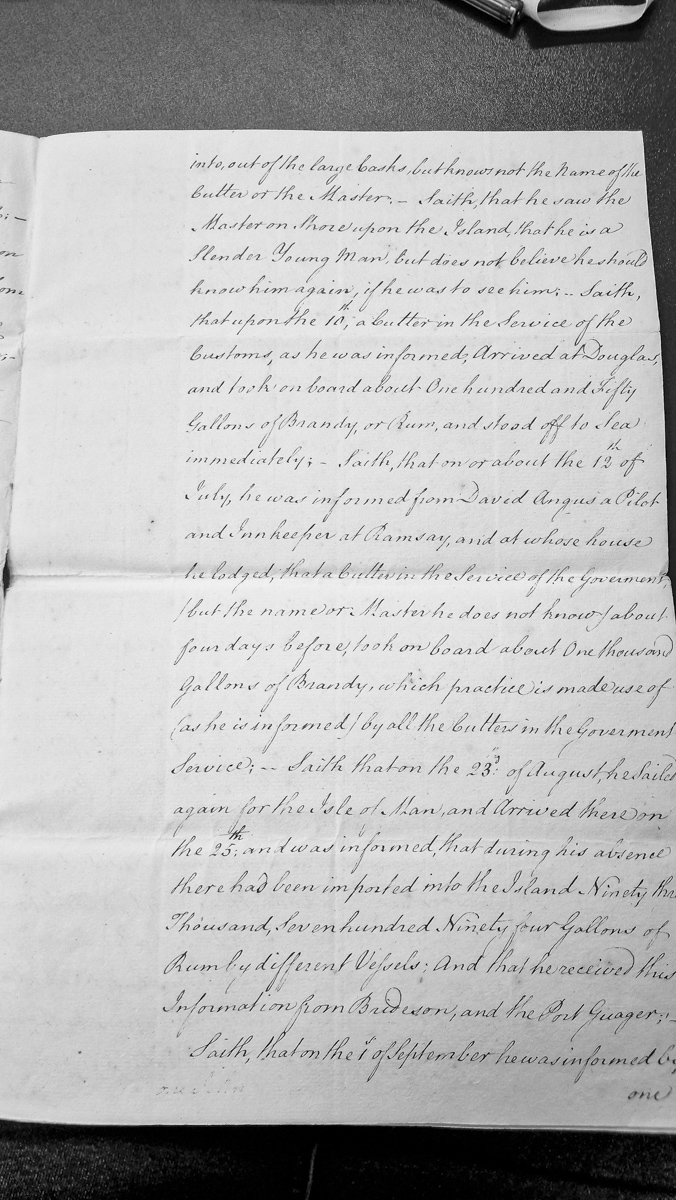 into, out of the large Casks, but knows not the Name of the
Cutter or the Master; – Saith, that he saw the
Master on Shore upon the Island, that he is a
Slender Young Man, but does not believe he should
know him again, if he was to see him; – Saith,
that upon the 10th, a Cutter in the Service of the
Customs, as he was informed, Arrived at Douglas,
and took on board about One hundred and Fifty
Gallons of Brandy, or Rum, and stood off to Sea
immediately; – Saith, that on or about the 12th of
July, he was informed from David Angus a Pilot
and Innkeeper at Ramsay, and at whose house
he lodged, that a Cutter in the Service of the Goverment,
(but the name or Master he does not know) about
four days before, took on board about One thousand
Gallons of Brandy, which practice is made use of
(as he is informed) by all the Cutters in the Goverment
Service; – – Saith that on the 23d: of August, he Sailed
again for the Isle of Man, and Arrived there on
the 25th; and was informed, that during his absence
there had been imported into the Island Ninety thr
Thousand, Seven hundred Ninety four Gallons of
Rum by different Vessels; And that he received this
Information from Brideson, and the Port Guager; –
Saith, that on the 1st of September he was informed by
one